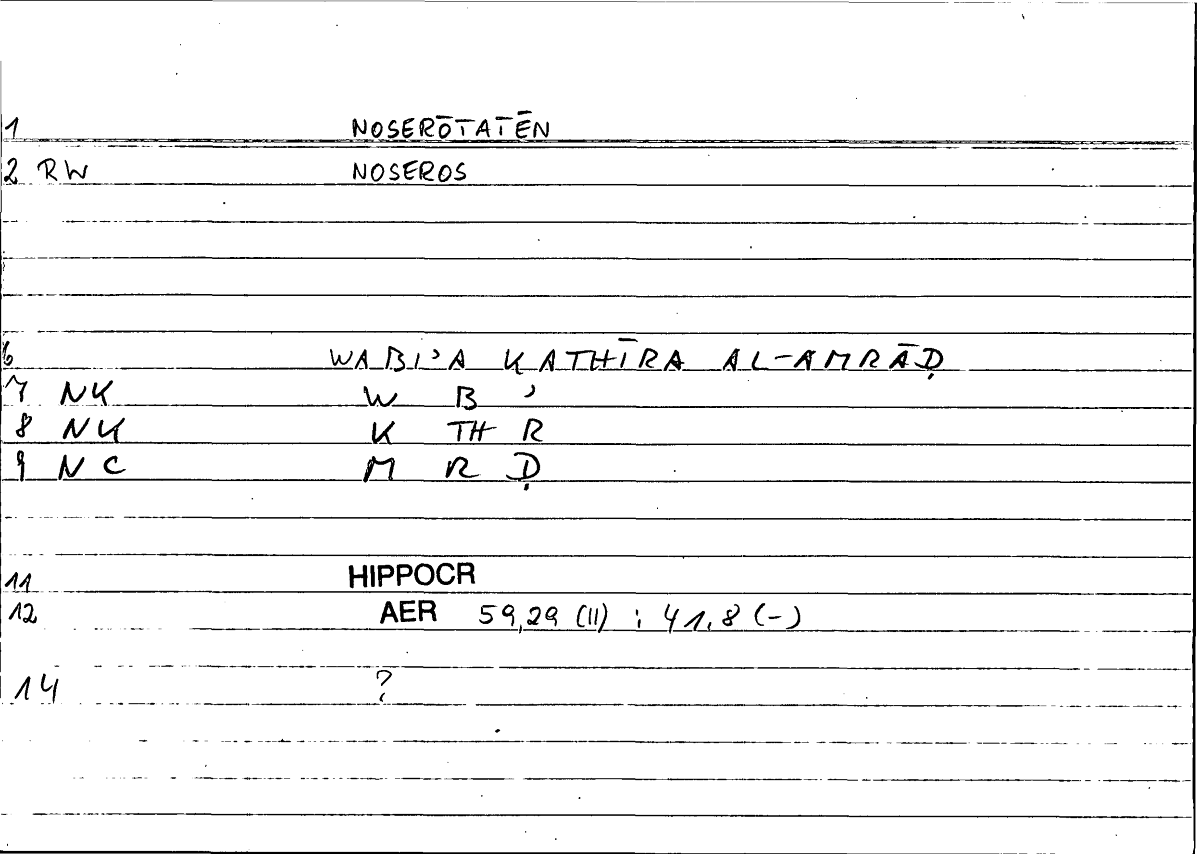 1 NOSERŌTATĒN
2 RW NOSEROS
6 WABI'A KATHĪRA AL-AMRĀḌ
7 NK W B '
8 NK K TH R
9 NC M R Ḍ
11 HIPPOCR
12 AER 59,29 (11) ; 41,8 (-)
14 ?